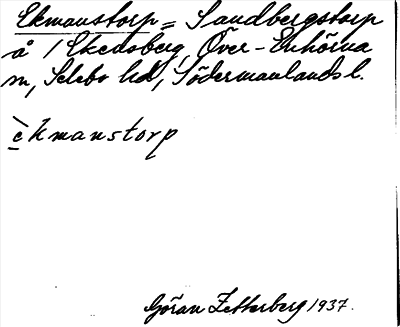 Ekmanstorp = Sandbergstorp
å / Ekensberg, Över-Enhörna
sn, Selebo hd, Södermanlands l.
èkmanstorp
Göran Zetterberg 1937.